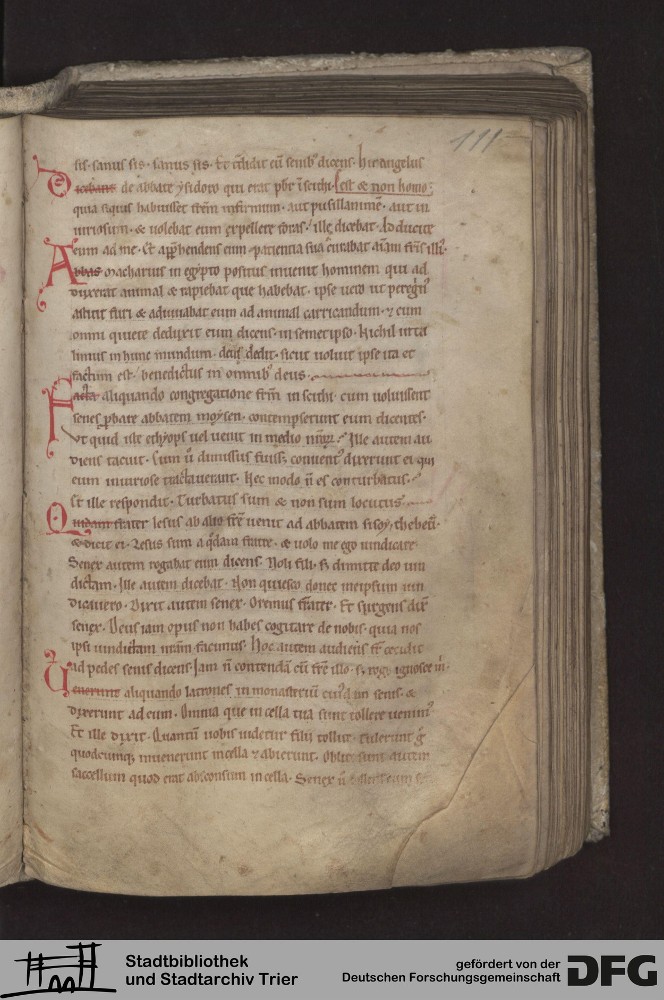 111
sis. sanus sis. sanus sis. Et credidit cū senib' dicens. hic angelus
Dicebant de abbate ysidoro qui erat pbr ī scithi. est & non homo.
quia siquis habuisset frēm infirmum. aut pusillanimē. aut in
iuriosum. & uolebat eum expellere foras. ille dicebat. Adducite
eum ad me. Et apphendens eum patientia sua curabat aīam fris illi'.
Abbas macharius in egypto positus inuenit hominem qui ad
duxerat animal & rapiebat que habebat. ipse uero ut peregrin'
astitit furi & adiuuabat eum ad animal carricandum. & cum
omni quiete deduxit eum dicens. in semetipso. Nichil intu
limus in hunc mundum. deus dedit. sicut uoluit ipse ita et
factum est. benedictus in omnib' deus.
Facta aliquando congregatione frm in scithi. cum uoluissent
senes pbare abbatem moysen. contempserunt eum dicentes.
Vt quid iste ethyops uel uenit in medio nrm. Ille autem au
diens tacuit. Cum u dimissus fuiss; conuent' dixerunt ei qui
eum iniuriose tractauerant. Hec modo n es conturbatus.
Et ille respondit. Turbatus sum & non sum locutus.
Quidam frater lesus ab alio fre uenit ad abbatem sisoy. thebeu.
& dicit ei. Lesus sum a qdam fratre. & uolo me ego uindicare.
Senex autem rogabat eum dicens. Noli fili. s; dimitte deo uin
dictam. Ille autem dicebat. Non quiesco donec meipsum uin
dicauero. Dixit autem senex. Oremus frater. Et surgens dix
senex. Deus iam opus non habes cogitare de nobis. quia nos
ipsi uindictam nram facimus. Hoc autem audiens fr cecidit
ad pedes senis dicens. Iam n contendā cū fre illo. s; rogo ignosce m.
Venerunt aliquando latrones in monasteriū cui'dam senis. &
dixerunt ad eum. Omnia que in cella tua sunt tollere uenim'
Et ille dixit. Quantū uobis uidetur filii tollite. Tulerunt g
quodcunq; inuenerunt in cella & abierunt. Obliti sunt autem
saccellum quod erat absconsum in cella. Senex u tollens eum
Stadtbibliothek
und Stadtarchiv Trier
gefördert von der
Deutschen Forschungsgemeinschaft
DFG